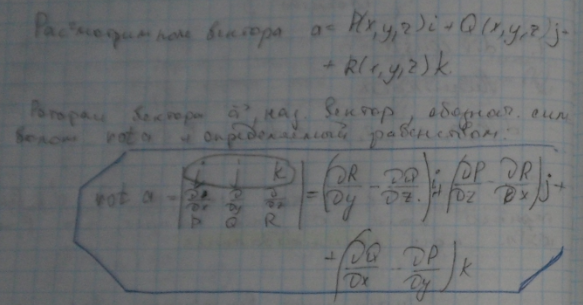 Рассмотрим поле вектора a = P(x,y,z)i + Q(x,y,z)j +
+ R(x,y,z)k
Ротором вектора a, наз. вектор, обознач. сим
волом rot a и определяемый равенством:
rot a = | i j k ; ∂/∂x ∂/∂y ∂/∂z ; P Q R | = (∂R/∂y - ∂Q/∂z)i + (∂P/∂z - ∂R/∂x)j +
+ (∂Q/∂x - ∂P/∂y)k